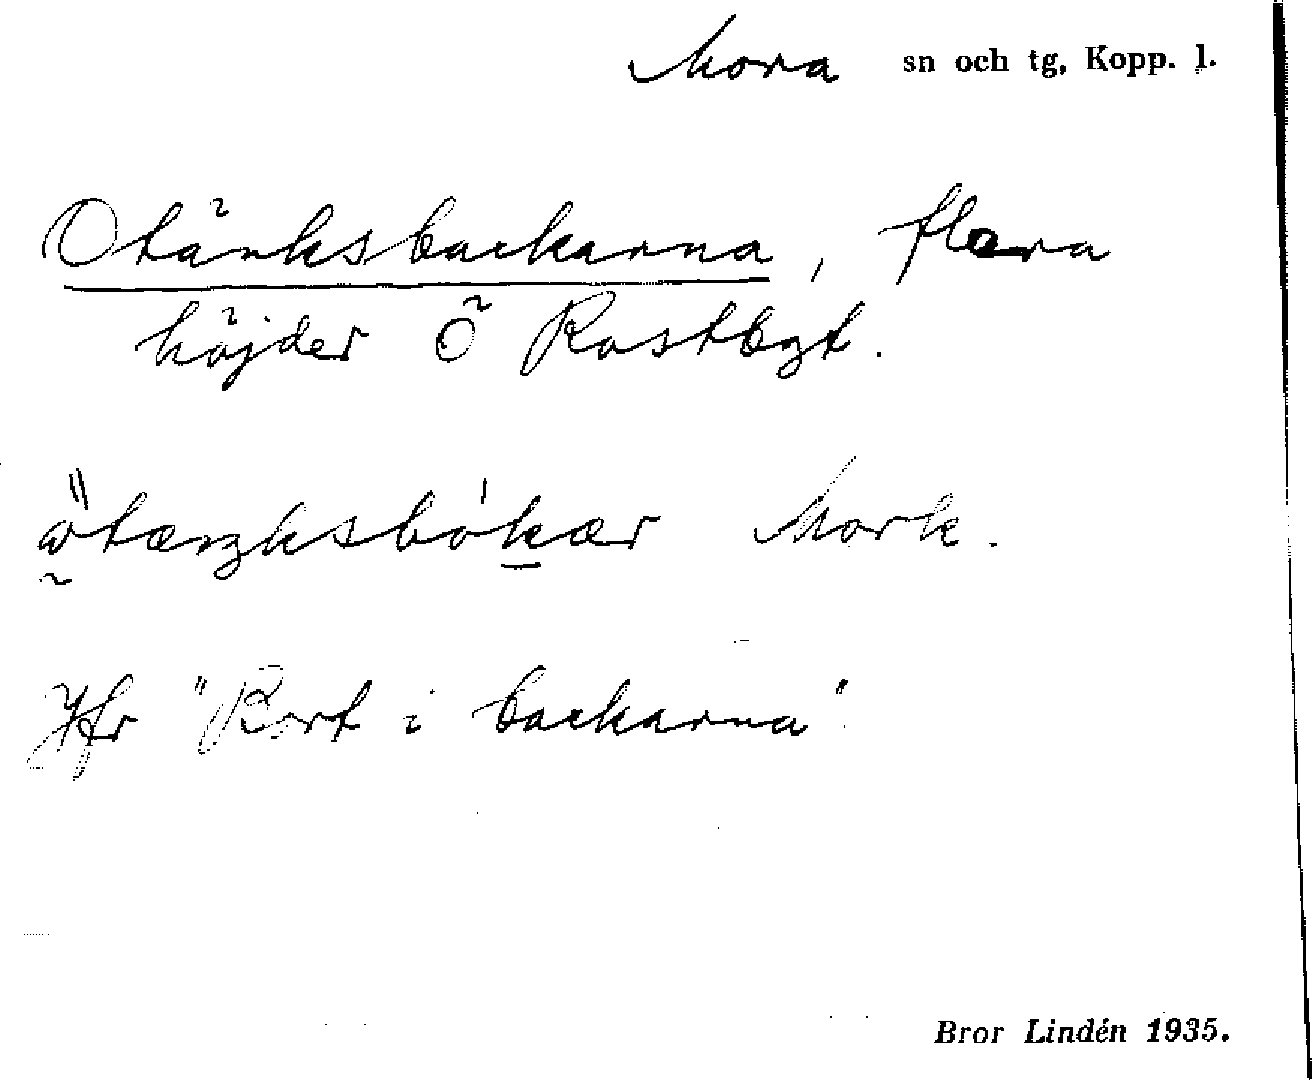 Mora sn och tg, Kopp. l.
Otänksbackarna, flera
höjder Ö Rostbgt.
Mork.
Jfr "Bort i backarna".
Bror Lindén 1935.